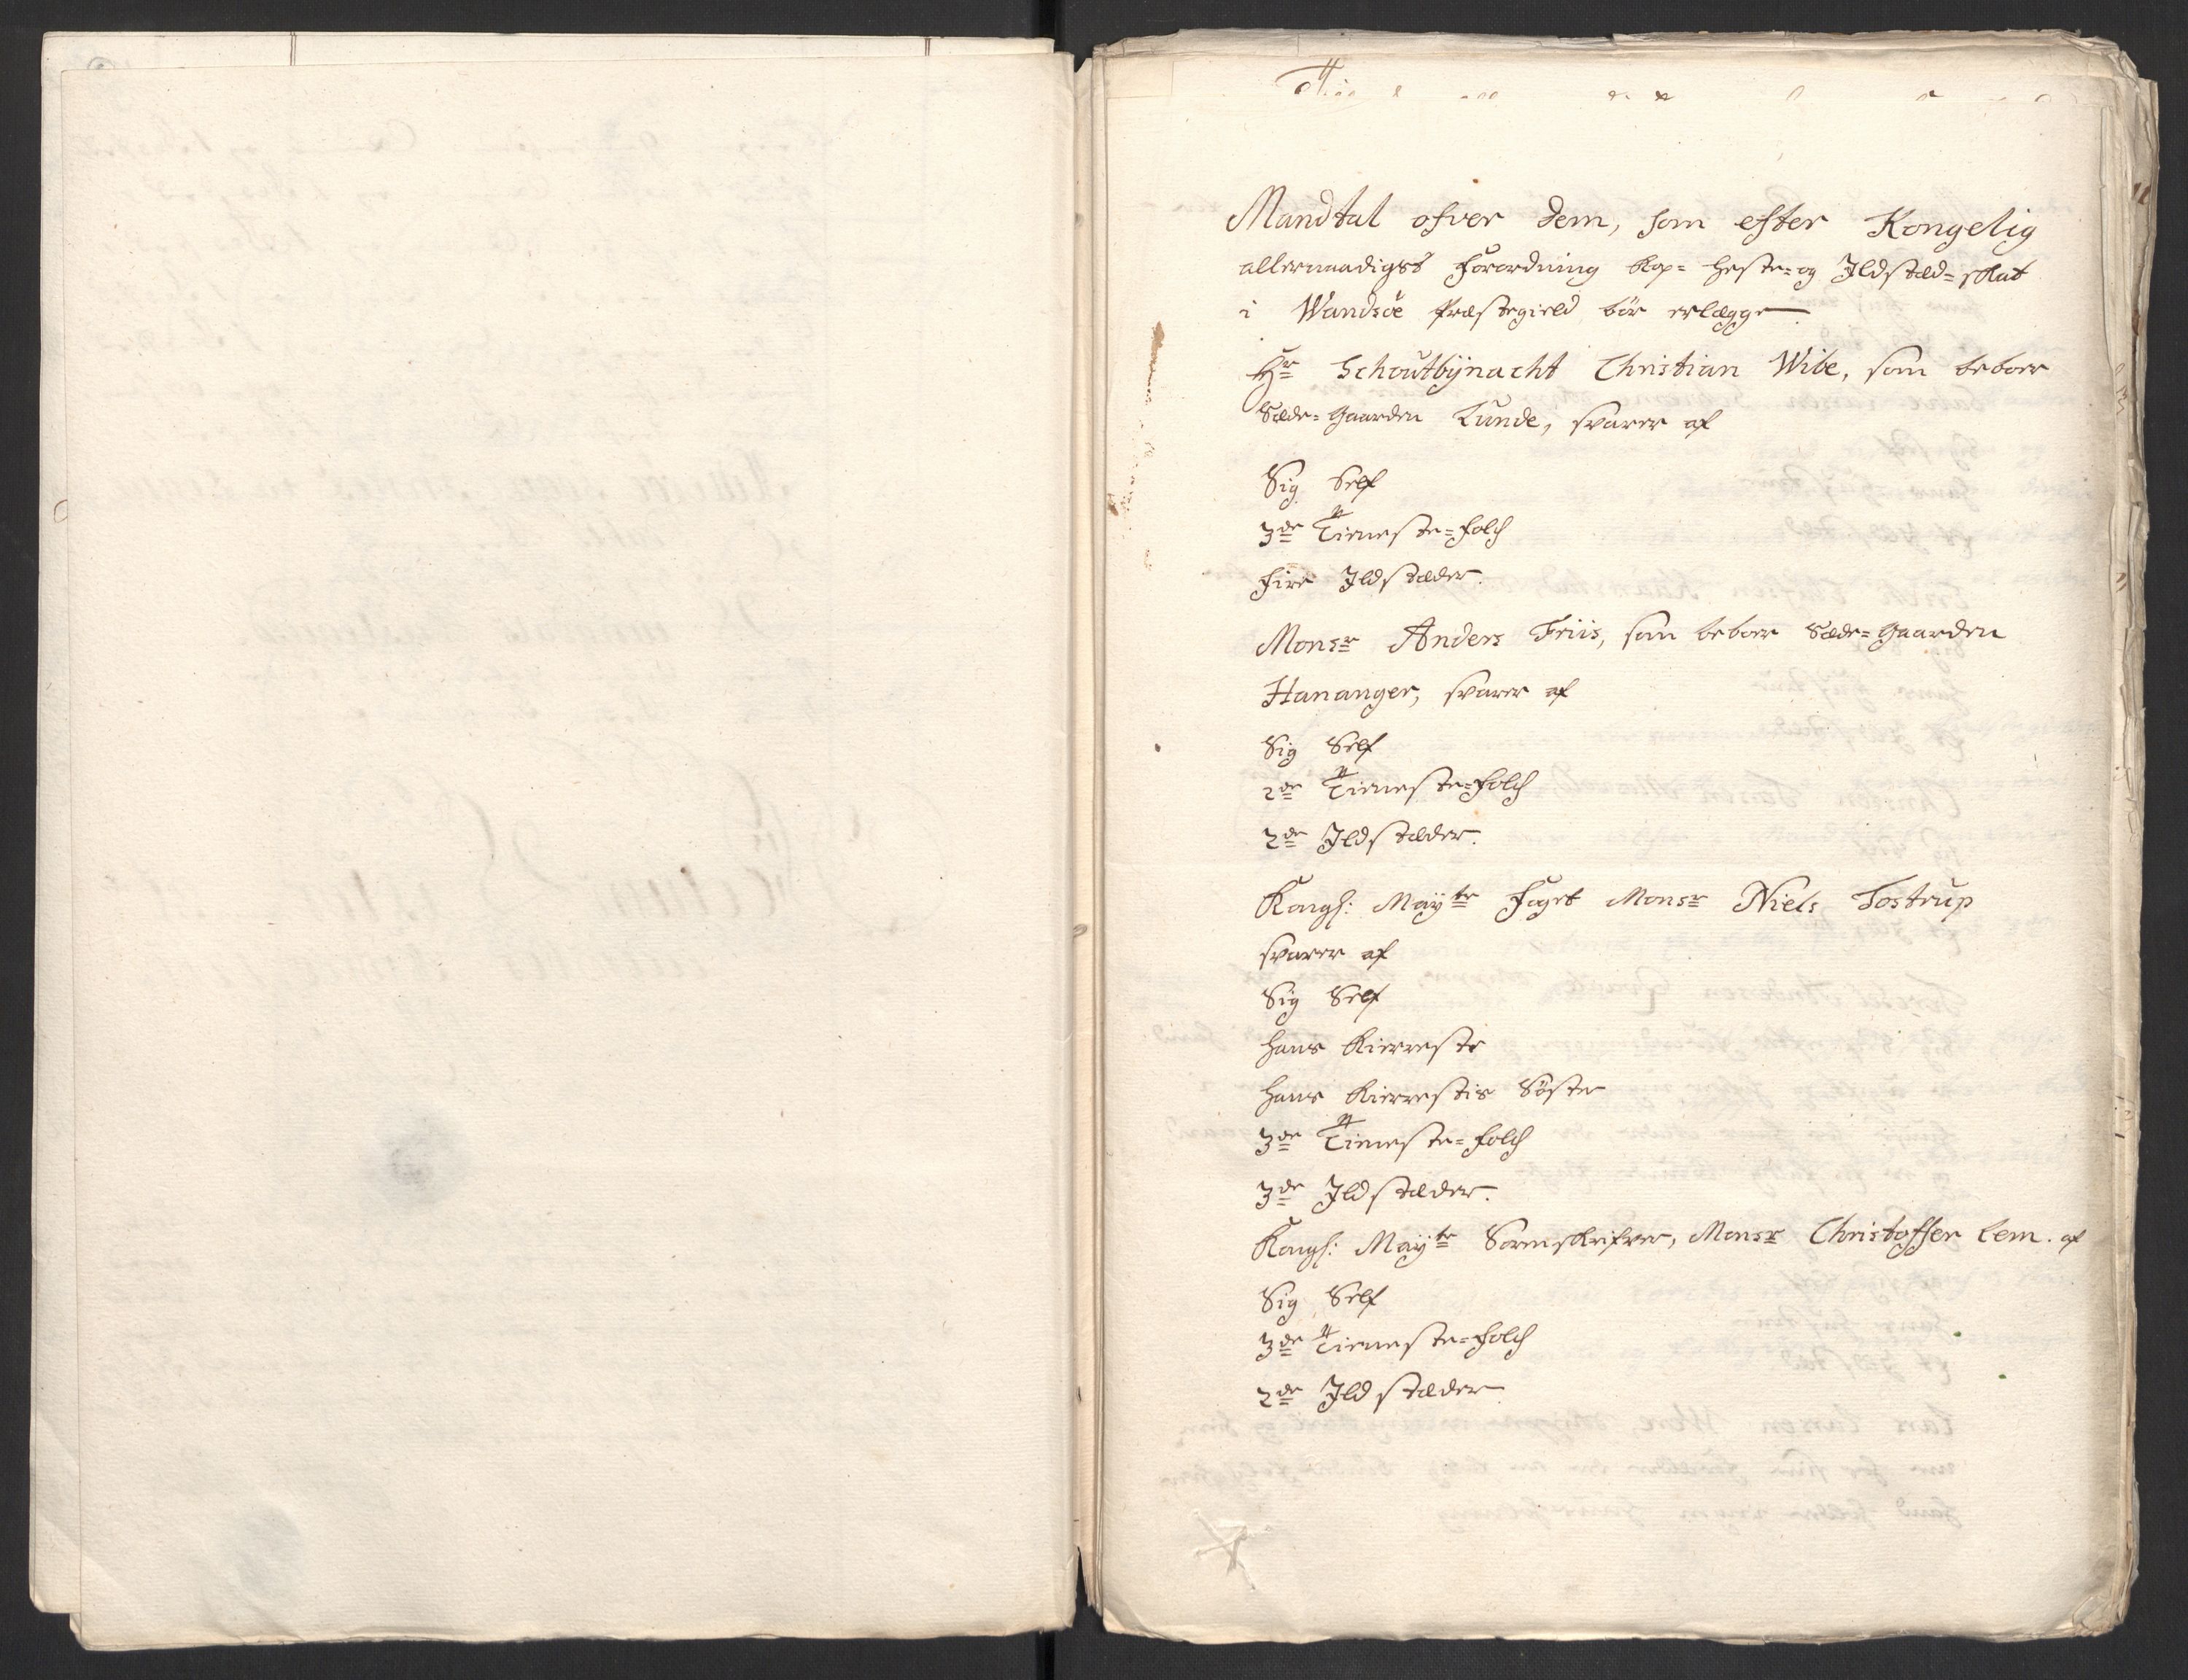 Mandtal ofver dem, som efter Kongelig
allernaadigst Forordning Kop= Heste= og Ildstæd= skat
i Wandsöe Præstegield bör erlægge
Hr Schoutbÿnacht Christian Wibe, som beboer
Sæde=Gaarden Lunde, svarer af
Sig Self
3de Tieneste=Folch
Fire Ildstæder.
Monsr Anders Friis, som beboer Sæde=Gaarden
Hananger, svarer af
Sig Self
2de Tieneste=Folch
2de Ildstæder.
Kongl: Maÿts Foget Monsr Niels Tostrup
svarer af
Sig Self
Hans Kierreste
Hans Kierrestis Söster
3de Tieneste=Folch
3de Ildstæder.
Kongl: Maÿts Sorenskrifver, Monsr Christoffer Lem. af
Sig Self
3de Tieneste=Folch
2de Ildstæder